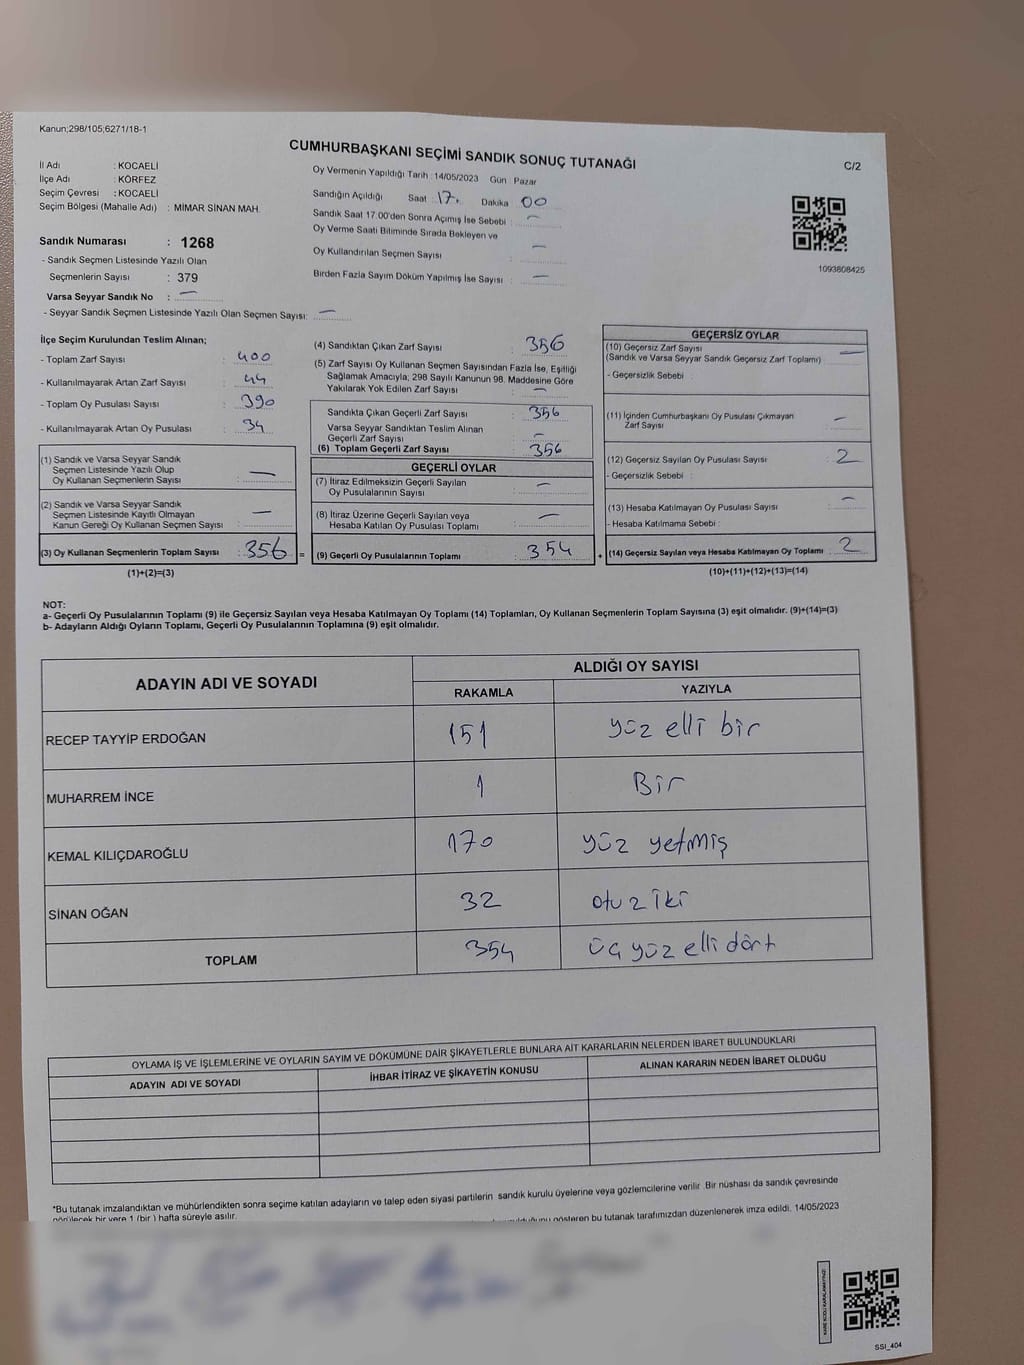 Kanun;298/105;6271/18-1
CUMHURBAŞKANI SEÇİMİ SANDIK SONUÇ TUTANAĞI
C/2
İl Adı : KOCAELİ
İlçe Adı : KÖRFEZ
Seçim Çevresi : KOCAELİ
Seçim Bölgesi (Mahalle Adı) : MİMAR SİNAN MAH.
Sandık Numarası : 1268
- Sandık Seçmen Listesinde Yazılı Olan
Seçmenlerin Sayısı : 379
Varsa Seyyar Sandık No : —
- Seyyar Sandık Seçmen Listesinde Yazılı Olan Seçmen Sayısı: —
Oy Vermenin Yapıldığı Tarih : 14/05/2023 Gün : Pazar
Sandığın Açıldığı Saat : 17. Dakika 00
Sandık Saat 17.00'den Sonra Açılmış İse Sebebi : —
Oy Verme Saati Bitiminde Sırada Bekleyen ve
Oy Kullandırılan Seçmen Sayısı : —
Birden Fazla Sayım Döküm Yapılmış İse Sayısı : —
1093808425
İlçe Seçim Kurulundan Teslim Alınan;
- Toplam Zarf Sayısı : 400
- Kullanılmayarak Artan Zarf Sayısı : 44
- Toplam Oy Pusulası Sayısı : 390
- Kullanılmayarak Artan Oy Pusulası : 34
(1) Sandık ve Varsa Seyyar Sandık
Seçmen Listesinde Yazılı Olup
Oy Kullanan Seçmenlerin Sayısı : —
(2) Sandık ve Varsa Seyyar Sandık
Seçmen Listesinde Kayıtlı Olmayan
Kanun Gereği Oy Kullanan Seçmen Sayısı : —
(3) Oy Kullanan Seçmenlerin Toplam Sayısı : 356 =
(1)+(2)=(3)
(4) Sandıktan Çıkan Zarf Sayısı : 356
(5) Zarf Sayısı Oy Kullanan Seçmen Sayısından Fazla İse, Eşitliği
Sağlamak Amacıyla, 298 Sayılı Kanunun 98. Maddesine Göre
Yakılarak Yok Edilen Zarf Sayısı : —
Sandıkta Çıkan Geçerli Zarf Sayısı : 356
Varsa Seyyar Sandıktan Teslim Alınan
Geçerli Zarf Sayısı : —
(6) Toplam Geçerli Zarf Sayısı : 356
GEÇERLİ OYLAR
(7) İtiraz Edilmeksizin Geçerli Sayılan
Oy Pusulalarının Sayısı : —
(8) İtiraz Üzerine Geçerli Sayılan veya
Hesaba Katılan Oy Pusulası Toplamı : —
(9) Geçerli Oy Pusulalarının Toplamı : 354 +
GEÇERSİZ OYLAR
(10) Geçersiz Zarf Sayısı —
(Sandık ve Varsa Seyyar Sandık Geçersiz Zarf Toplamı)
- Geçersizlik Sebebi :
(11) İçinden Cumhurbaşkanı Oy Pusulası Çıkmayan
Zarf Sayısı : —
(12) Geçersiz Sayılan Oy Pusulası Sayısı : 2
- Geçersizlik Sebebi :
(13) Hesaba Katılmayan Oy Pusulası Sayısı : —
- Hesaba Katılmama Sebebi :
(14) Geçersiz Sayılan veya Hesaba Katılmayan Oy Toplamı : 2
(10)+(11)+(12)+(13)=(14)
NOT:
a- Geçerli Oy Pusulalarının Toplamı (9) ile Geçersiz Sayılan veya Hesaba Katılmayan Oy Toplamı (14) Toplamları, Oy Kullanan Seçmenlerin Toplam Sayısına (3) eşit olmalıdır. (9)+(14)=(3)
b- Adayların Aldığı Oyların Toplamı, Geçerli Oy Pusulalarının Toplamına (9) eşit olmalıdır.
ADAYIN ADI VE SOYADI
ALDIĞI OY SAYISI
RAKAMLA YAZIYLA
RECEP TAYYİP ERDOĞAN 151 yüz elli bir
MUHARREM İNCE 1 Bir
KEMAL KILIÇDAROĞLU 170 yüz yetmiş
SİNAN OĞAN 32 otuz iki
TOPLAM 354 üç yüz elli dört
OYLAMA İŞ VE İŞLEMLERİNE VE OYLARIN SAYIM VE DÖKÜMÜNE DAİR ŞİKAYETLERLE BUNLARA AİT KARARLARIN NELERDEN İBARET BULUNDUKLARI
ADAYIN ADI VE SOYADI İHBAR İTİRAZ VE ŞİKAYETİN KONUSU ALINAN KARARIN NEDEN İBARET OLDUĞU
*Bu tutanak imzalandıktan ve mühürlendikten sonra seçime katılan adayların ve talep eden siyasi partilerin sandık kurulu üyelerine veya gözlemcilerine verilir. Bir nüshası da sandık çevresinde
görülecek bir yere 1 (bir ) hafta süreyle asılır.
gösteren bu tutanak tarafımızdan düzenlenerek imza edildi. 14/05/2023
SSİ_404